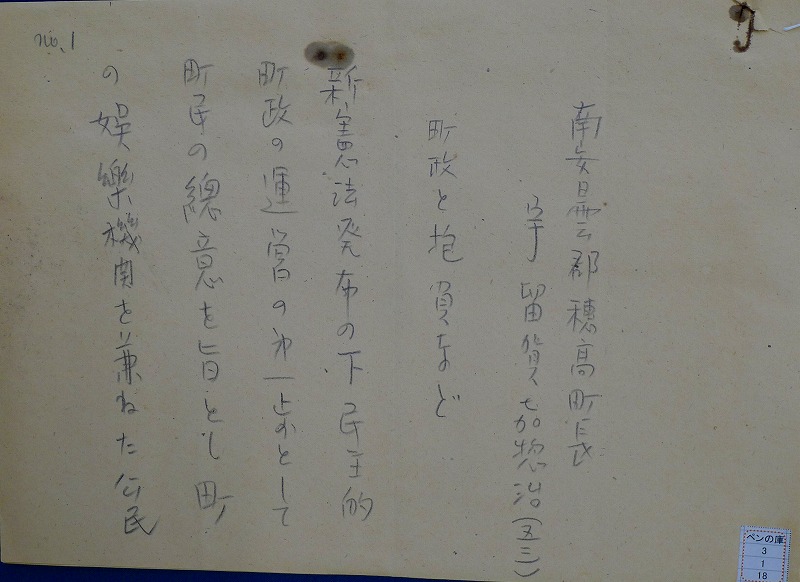 南安曇郡穂高町長
宇留賀嘉惣治（五三）
町政と抱負など
新憲法発布の下民主的
町政の運営の第一歩として
町民の總意を旨とし町
の娯樂機関を兼ねた公民
no.1
ペンの庫
3
1
18